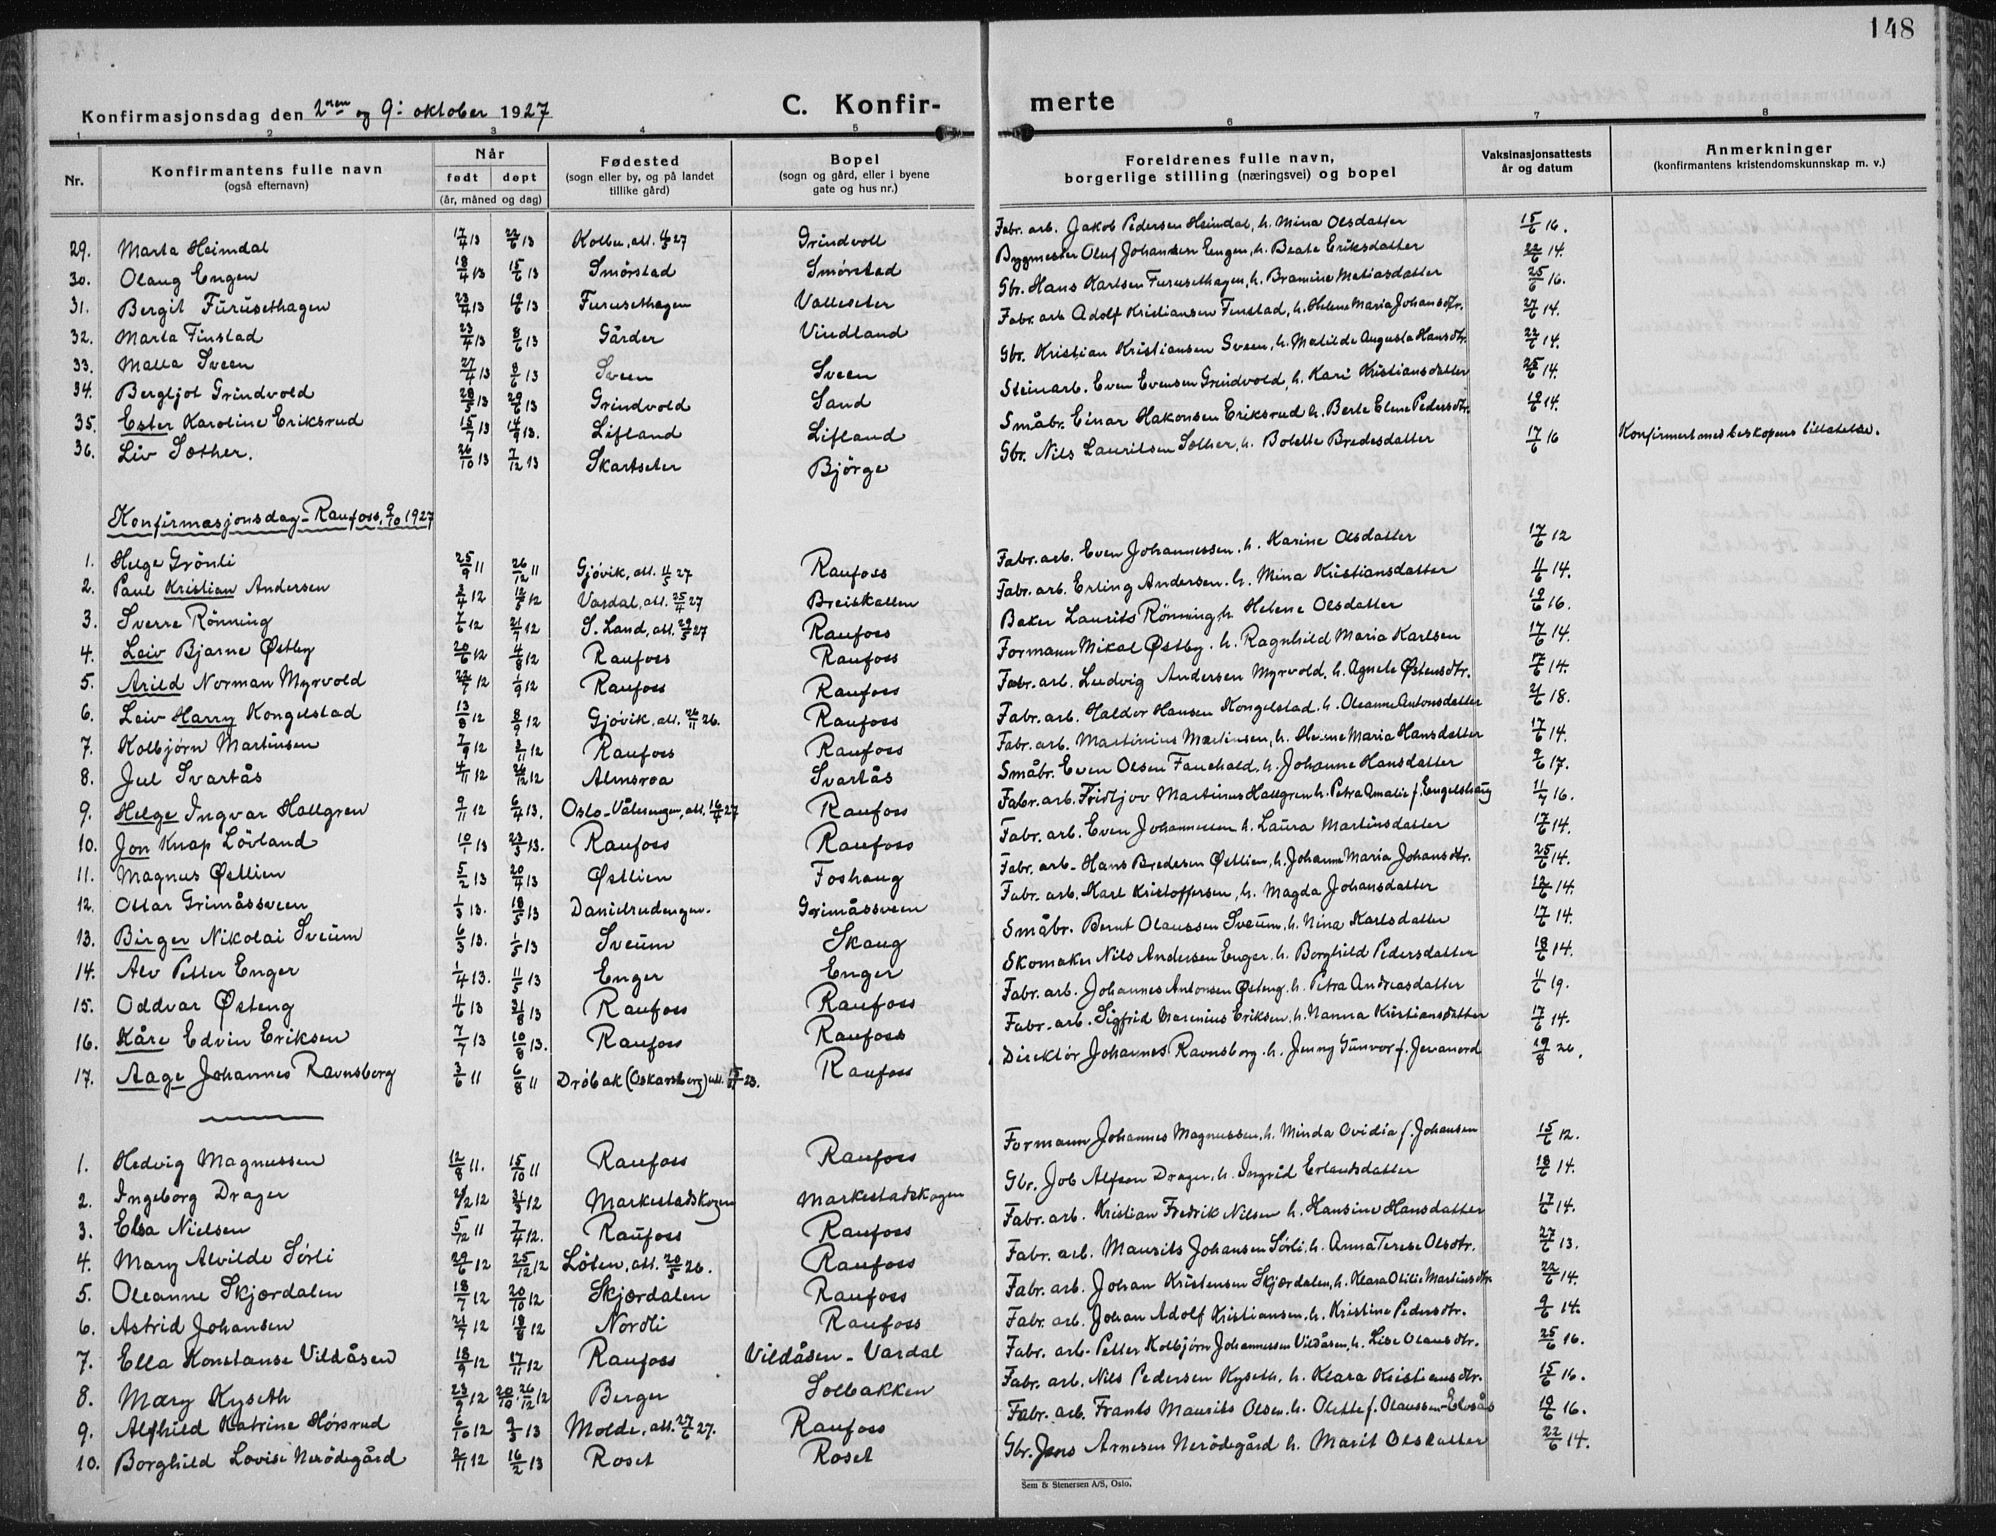 148
Konfirmasjonsdag den 2nen og 9: oktober 1927 C. Konfir- merte
1 2 3 4 5 6 7 8
Nr. Konfirmantens fulle navn (også efternavn) Når født døpt (år, måned og dag) Fødested (sogn eller by, og på landet tillike gård) Bopel (sogn og gård, eller i byene gate og hus nr.) Foreldrenes fulle navn, borgerlige stilling (næringsvei) og bopel Vaksinasjonsattests år og datum Anmerkninger (konfirmantens kristendomskunnskap m. v.)
29. Marta Heimdal 17/4 13 22/6 13 Kolbu, att. 4/5 27 Grindvoll Fabr. arb. Jakob Pedersen Heimdal, h. Mina Olsdatter 15/6 16.
30. Olaug Engen 18/4 13 15/6 13 Smørstad Smørstad Byggmester Oluf Johansen Engen, h. Beate Eriksdatter 22/6 14.
31. Bergit Furusethagen 23/4 13 19/6 13 Furusethagen Valleseter Gbr. Hans Karlsen Furusethagen, h. Bramine Matiasdatter 25/6 16.
32. Marta Finstad 23/4 13 8/6 13 Gårder Vindland Fabr. arb. Adolf Kristiansen Finstad, h. Helene Maria Johansdtr. 27/6 14.
33. Malla Sveen 27/4 13 8/6 13 Sveen Sveen Gbr. Kristian Kristiansen Sveen, h. Matilde Augusta Hansdtr. 22/6 14.
34. Bergljot Grindvold 28/5 13 29/6 13 Grindvold Sand Steinarb. Even Evensen Grindvold, h. Kari Kristiansdatter 25/6 14.
35. Ester Karoline Eriksrud 15/7 13 14/9 13. Lifland Lifland Småbr. Einar Hakonsen Eriksrud h. Berte Eline Pedersdtr. 19/6 14.
36. Liv Sæther. 26/10 13 7/12 13 Skartseter Bjørge Gbr. Nils Lauritsen Sæther, h. Bolette Bredesdatter 17/6 16 Konfirmert med biskopens tillatelse.
Konfirmasjonsdag - Raufoss, 9/10 1927
1. Helge Grönli 25/9 11 26/12 11 Gjövik, att. 11/5 27 Raufoss Fabr. arb. Even Johannessen. h. Karine Olsdatter 17/6 12
2. Paul Kristian Andersen 3/4 12 12/5 12 Vardal, att. 25/4 27 Breiskallen Fabr. arb. Erling Andersen. h. Mina Kristiansdatter 11/6 14.
3. Sverre Rönning 7/6 12 21/7 12 S. Land, att. 29/5 27 Raufoss Baker Laurits Rönning, h. Helene Olsdatter 19/6 16.
4. Leiv Bjarne Østby 20/6 12 4/8 12 Raufoss Raufoss Formann Mikal Østby. h. Ragnhild Maria Karlsen 17/6 14.
5. Arild Norman Myrvold 22/7 12 1/9 12 Raufoss Raufoss Fabr. arb. Ludvig Andersen Myrvold. h. Agnete Østensdtr. 17/6 14.
6. Leiv Harry Kongelstad 13/8 12 8/9 12 Gjövik, att. 26/11 26. Raufoss Fabr. arb. Haldor Hansen Kongelstad. h. Oleanne Antonsdatter 21/6 18.
7. Kolbjørn Martinsen 7/9 12 3/11 12 Raufoss Raufoss Fabr. arb. Martinius Martinsen, h. Hanne Maria Hansdatter 17/6 14.
8. Jul Svartås 4/11 12 26/12 12 Almsroa Svartås Småbr. Even Olsen Fauchald. h. Johanne Hansdatter 9/6 17.
9. Helge Ingvar Hallgren 9/11 12 6/4 13. Oslo-Vålerengen, att. 16/4 27 Raufoss Fabr. arb. Fridtjov Martinus Hallgren h. Petra Amalie f. Engelshaug 11/7 16.
10. Jon Knap Lövland 10/1 13 23/3 13. Raufoss Raufoss Fabr. arb. Even Johannessen h. Laura Martinsdatter 17/6 14.
11. Magnus Østlien 5/2 13 20/4 13 Østlien Foshaug Fabr. arb. Hans Bredesen Østlien, h. Johanne Maria Johansdtr. 25/6 14.
12. Ottar Grimåssveen 1/3 13. 18/5 13 Danielrudengen. Grimåssveen Fabr. arb. Karl Kristoffersen, h. Magda Johansdatter 12/6 14.
13. Birger Nikolai Sveum 6/3 13. 1/5 13 Sveum Skaug Småbr. Bernt Olaussen Sveum, h. Nina Karlsdatter 17/6 14.
14. Alv Petter Enger 1/4 13. 11/5 13 Enger Enger Skomaker Nils Andersen Enger. h. Borghild Pedersdatter 18/6 14.
15. Oddvar Østeng 4/6 13 31/8 13 Raufoss Raufoss Fabr. arb. Johannes Antonsen Østeng. h. Petra Andreasdatter 11/6 19.
16. Kåre Edvin Eriksen 7/7 13 10/8 13. Raufoss Raufoss Fabr. arb. Sigfrid Marenius Eriksen. h. Nanna Kristiansdatter 17/6 14.
17. Aage Johannes Ravnsborg 3/6 11 6/8 11 Drøbak (Oskarsborg) att. 23. Raufoss Direktør Johannes Ravnsborg. h. Jenny Gunvor f. Jevanord 19/8 26.
1. Hedvig Magnussen 12/8 11. 15/10 11 Raufoss Raufoss Formann Johannes Magnussen. h. Minda Ovidia f. Johansen 15/6 12.
2. Ingeborg Drager 2/2 12 31/3 12 Markestadskogen Markestadskogen Gbr. Job Alfson Drager, h. Ingrid Erlandsdatter 18/6 14.
3. Elsa Nielsen 5/12 11 7/4 12. Raufoss Raufoss Fabr. arb. Kristian Fredrik Nilsen h. Hansine Hansdatter 17/6 14.
4. Mary Alvilde Sörli 29/6 12 25/12 12 Löten, att. 20/5 26. Raufoss Fabr. arb. Maurits Johansen Sörli, h. Anna Terese Olsdtr. 27/6 13.
5. Oleanne Skjærdalen 18/7 12 20/10 12 Skjærdalen Raufoss Fabr. arb. Johan Kristensen Skjærdalen, h. Klara Otilie Martinsdtr. 22/6 14.
6. Astrid Johansen 21/7 12 18/8 12 Nordli Raufoss Fabr. arb. Johan Adolf Kristiansen. h. Kristine Pedersdtr. 9/6 14.
7. Ella Konstanse Vildåsen 18/9 12 17/11 12 Raufoss Vildåsen - Vardal Fabr. arb. Petter Kolbjørn Johannessen Vildåsen, h. Lise Olausdtr. 25/6 16.
8. Mary Kyseth 23/9 12 20/10 - 26/12 12 Berger Solbakken Fabr. arb. Nils Pedersen Kyseth. h. Klara Kristiansdtr. 15/6 16.
9. Alfhild Katrine Hørsrud 6/10 12 9/3 13 Molde, att. 27/6 27. Raufoss Fabr. arb. Frants Maurits Olsen. h. Olette f. Olaussen-Elvsås 19/6 16.
10. Borghild Lovise Nerødegård 2/11 12 16/2 13 Roset Roset Gbr. Jens Arnesen Nerødegård h. Marit Olsdatter 22/6 14.
Sem & Stenersen A/S, Oslo.